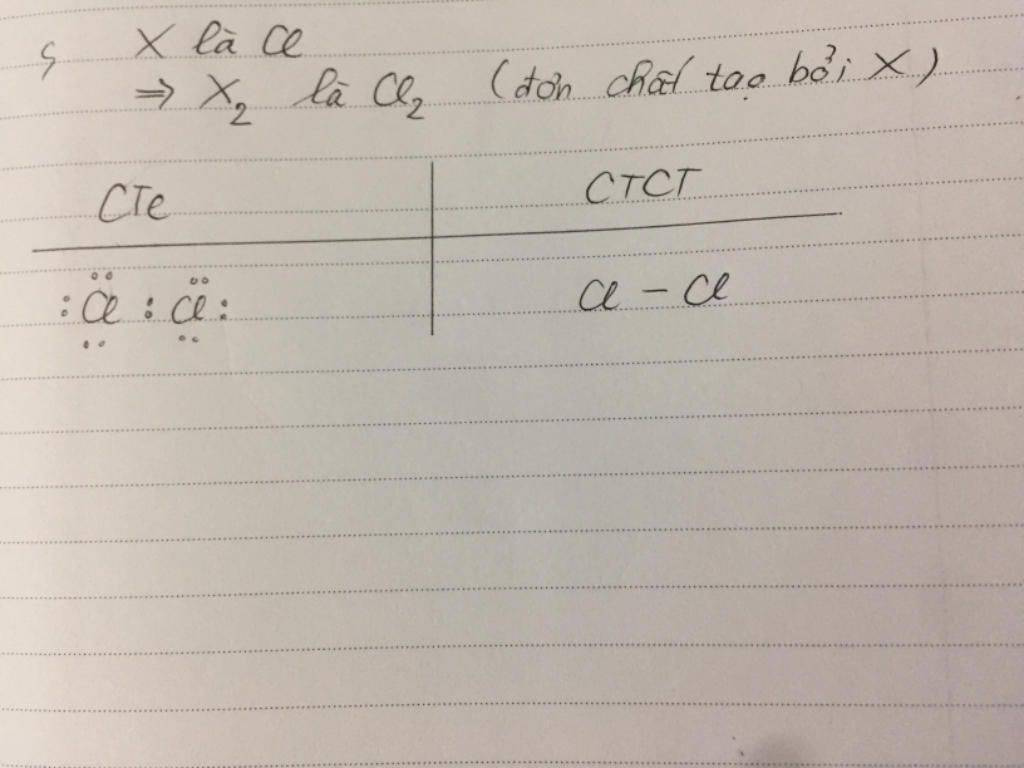 X là Cl
⇒ X₂ là Cl₂ (đơn chất tạo bởi X)
CTe CTCT
:Cl : Cl: Cl – Cl